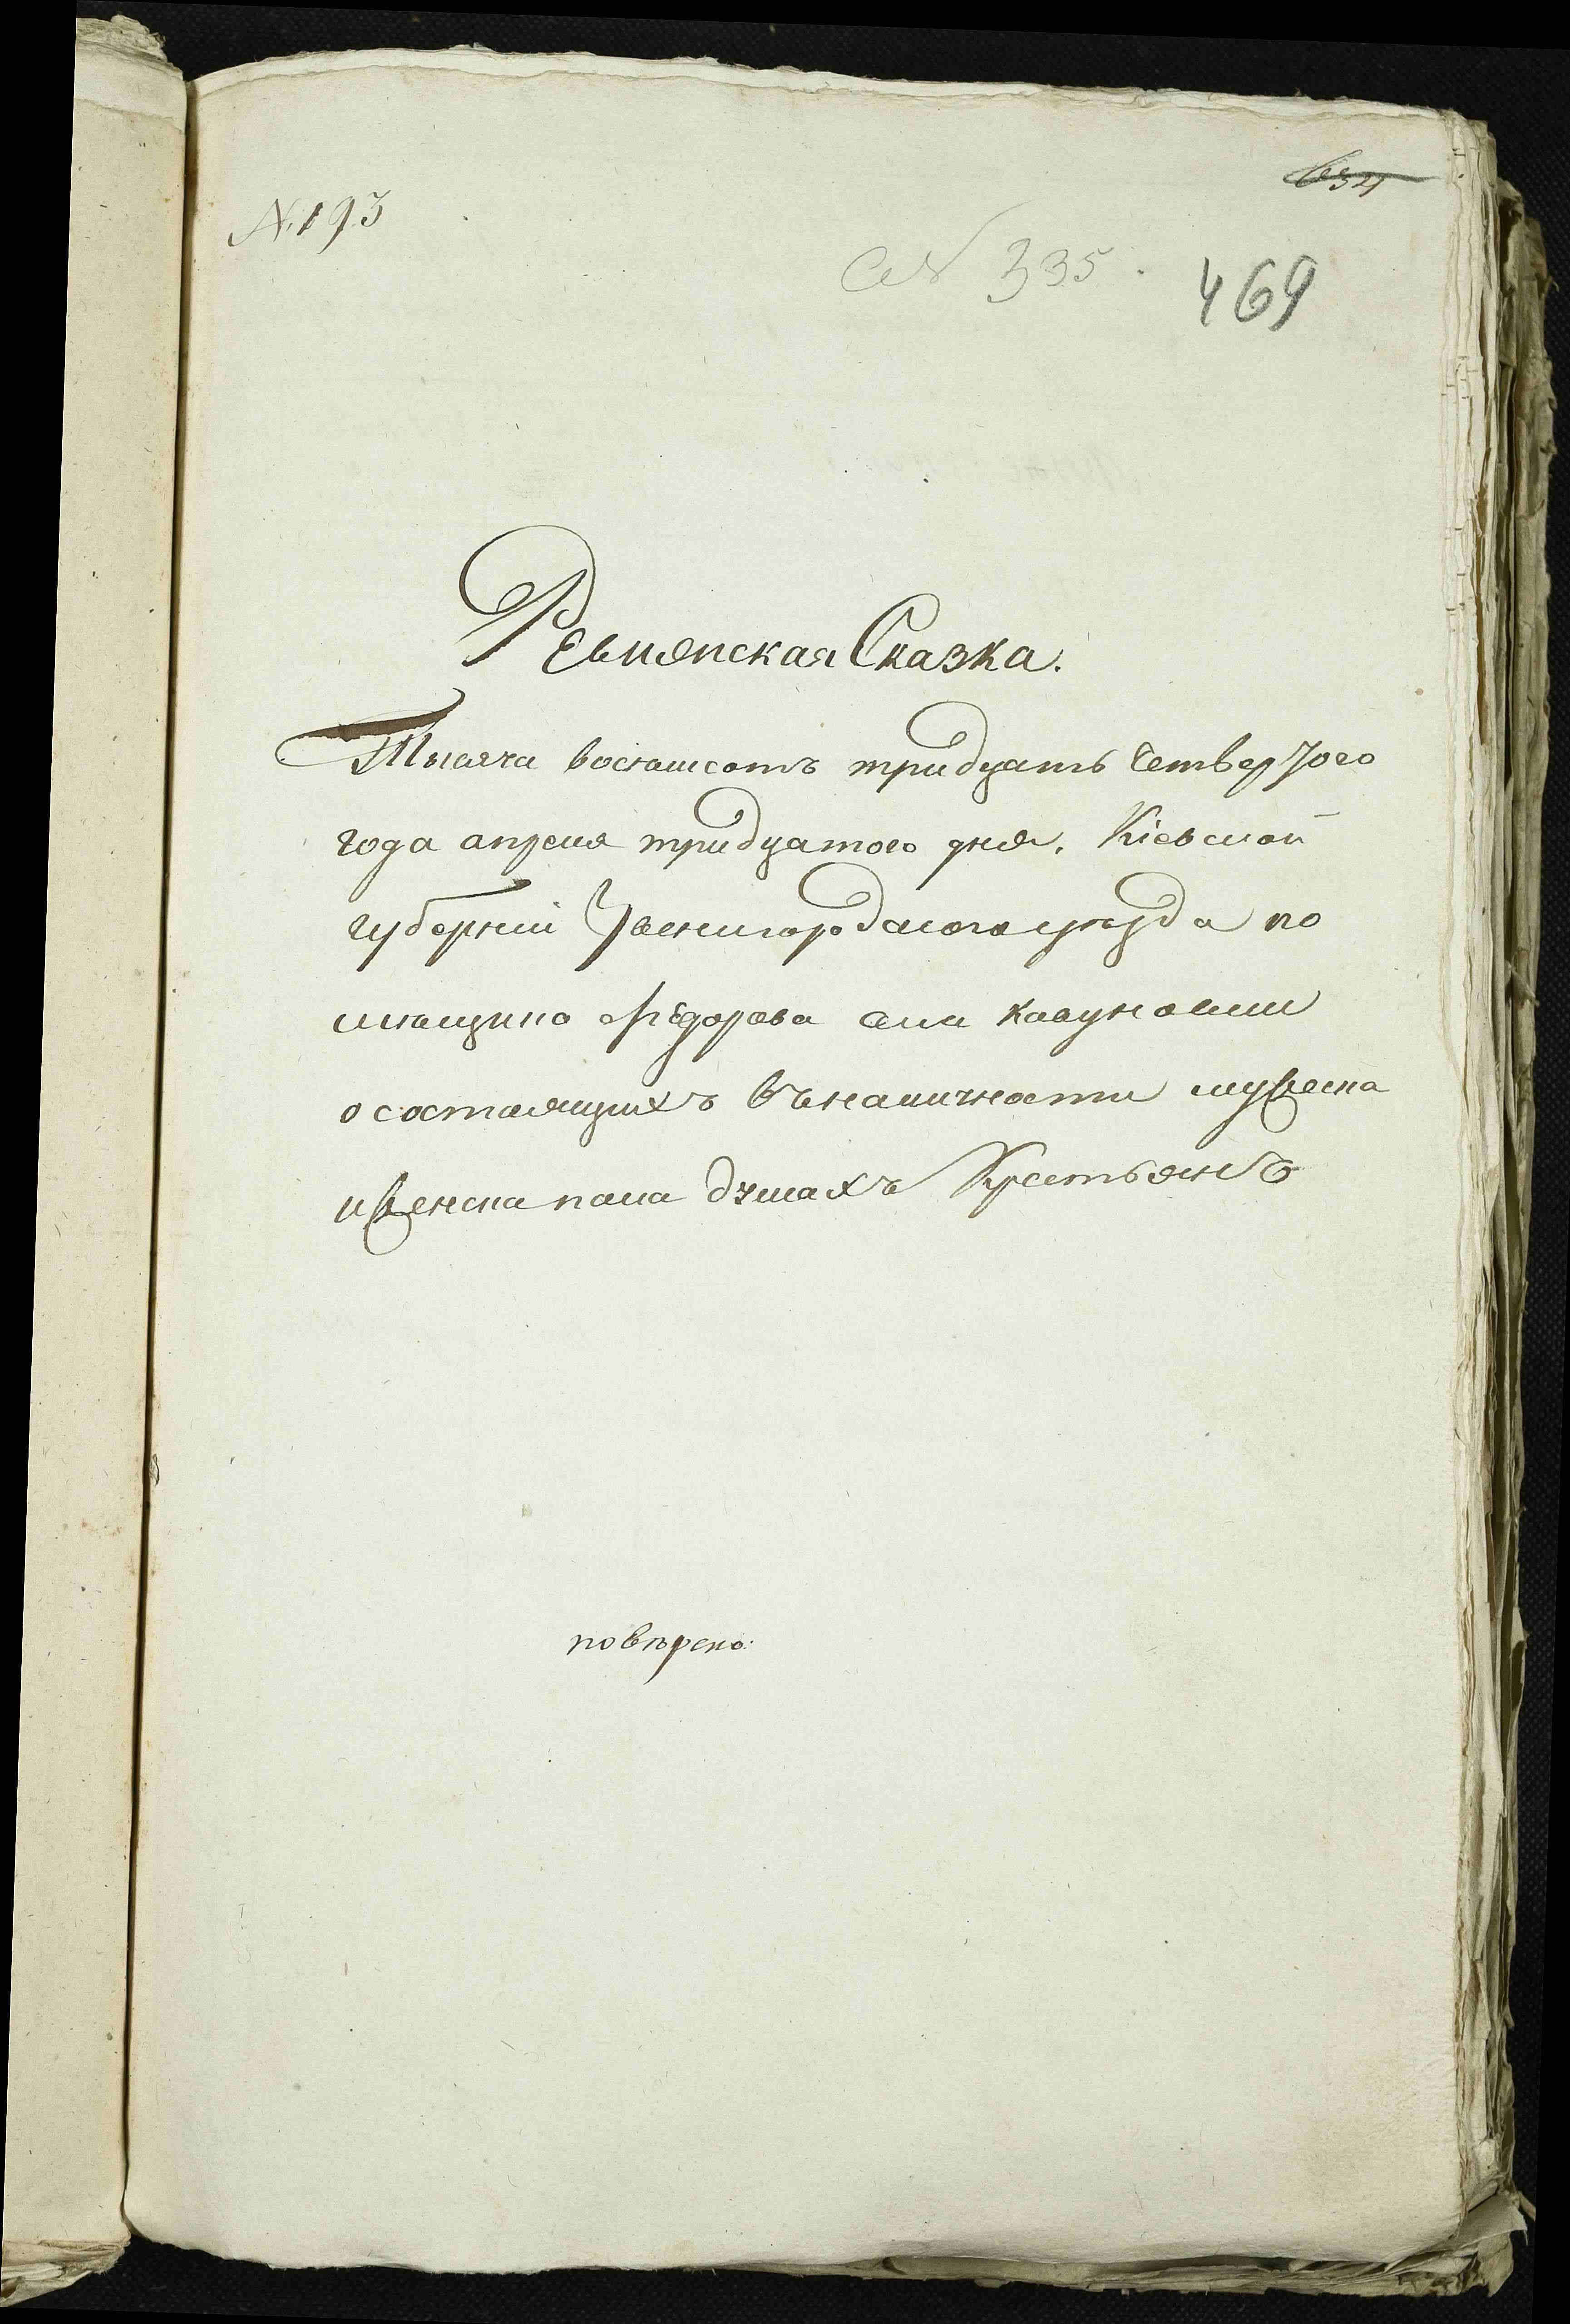 634
N. 193
№ 335.
469
Ревизская Сказка.
Тысяча восемсотъ тридцать Четвертого
года апреля тридцатого дня. Кіевской
губерніи Звенигородского уезда по
мѣщика Федорова села кавуновки
о состаящихъ въ наличности мужеска
и женска пола душахъ Крестьянъ
повѣрено: